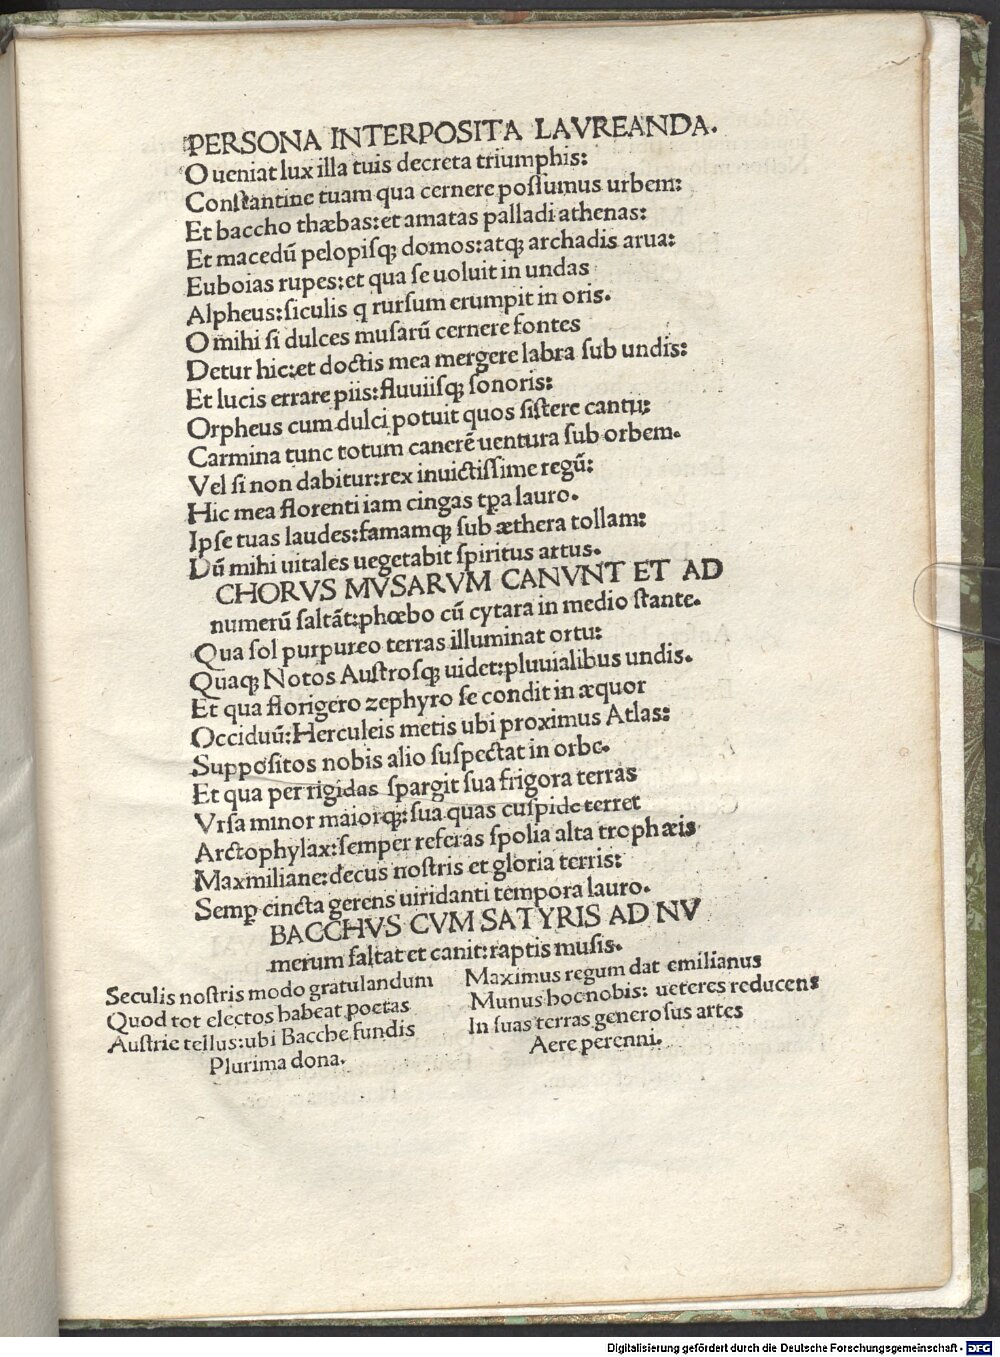 PERSONA INTERPOSITA LAVREANDA.
O ueniat lux illa tuis decreta triumphis:
Conſtantine tuam qua cernere poſſumus urbem:
Et baccho thæbas:et amatas palladi athenas:
Et macedū pelopiſq; domos:atq; archadis arua:
Euboias rupes:et qua ſe uoluit in undas
Alpheus:ſiculis q rurſum erumpit in oris.
O mihi ſi dulces muſarū cernere fontes
Detur hic:et doctis mea mergere labra ſub undis:
Et lucis errare piis:fluuiiſq; ſonoris:
Orpheus cum dulci potuit quos ſiſtere cantu:
Carmina tunc totum canerē uentura ſub orbem.
Vel ſi non dabitur:rex inuictiſſime regū:
Hic mea florenti iam cingas tꝑa lauro.
Ipſe tuas laudes:famamq; ſub æthera tollam:
Dū mihi uitales uegetabit ſpiritus artus.
CHORVS MVSARVM CANVNT ET AD
numerū ſaltāt:phœbo cū cytara in medio ſtante.
Qua ſol purpureo terras illuminat ortu:
Quaq; Notos Auſtroſq; uidet:pluuialibus undis.
Et qua florigero zephyro ſe condit in æquor
Occiduū:Herculeis metis ubi proximus Atlas:
Suppoſitos nobis alio ſuſpectat in orbe.
Et qua per rigidas ſpargit ſua frigora terras
Vrſa minor maiorq;:ſua quas cuſpide terret
Arctophylax:ſemper referas ſpolia alta trophæis
Maxmiliane:decus noſtris et gloria terris:
Semꝑ cincta gerens uiridanti tempora lauro.
BACCHVS CVM SATYRIS AD NV
merum ſaltat et canit:raptis muſis.
Seculis noſtris modo gratulandum
Quod tot electos habeat poetas
Auſtrie tellus:ubi Bacche fundis
Plurima dona.
Maximus regum dat emilianus
Munus hoc nobis: ueteres reducens
In ſuas terras generoſus artes
Aere perenni.
Digitalisierung gefördert durch die Deutsche Forschungsgemeinschaft - DFG